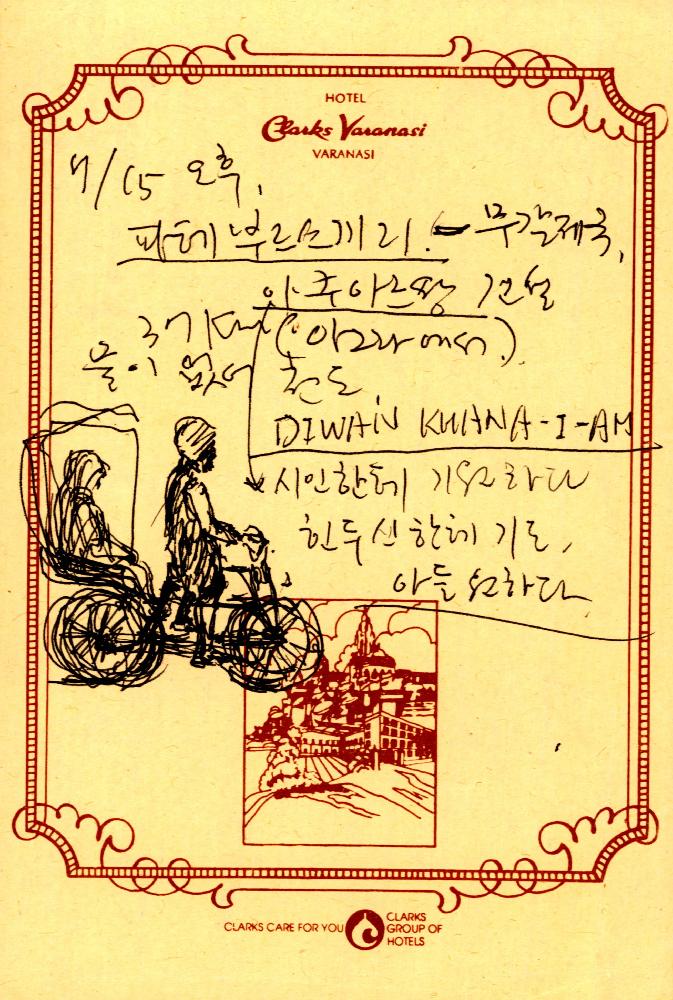 HOTEL
Clarks Varanasi
VARANASI
7/15 오후,
파테부르스끼리. - 무갈제국,
아쿠아르땅 건설
물이 없어
천도
DIWAN KHANA-I-AM
시인한테 기
힌두신한테 기도,
아들
CLARKS CARE FOR YOU
CLARKS
GROUP OF
HOTELS